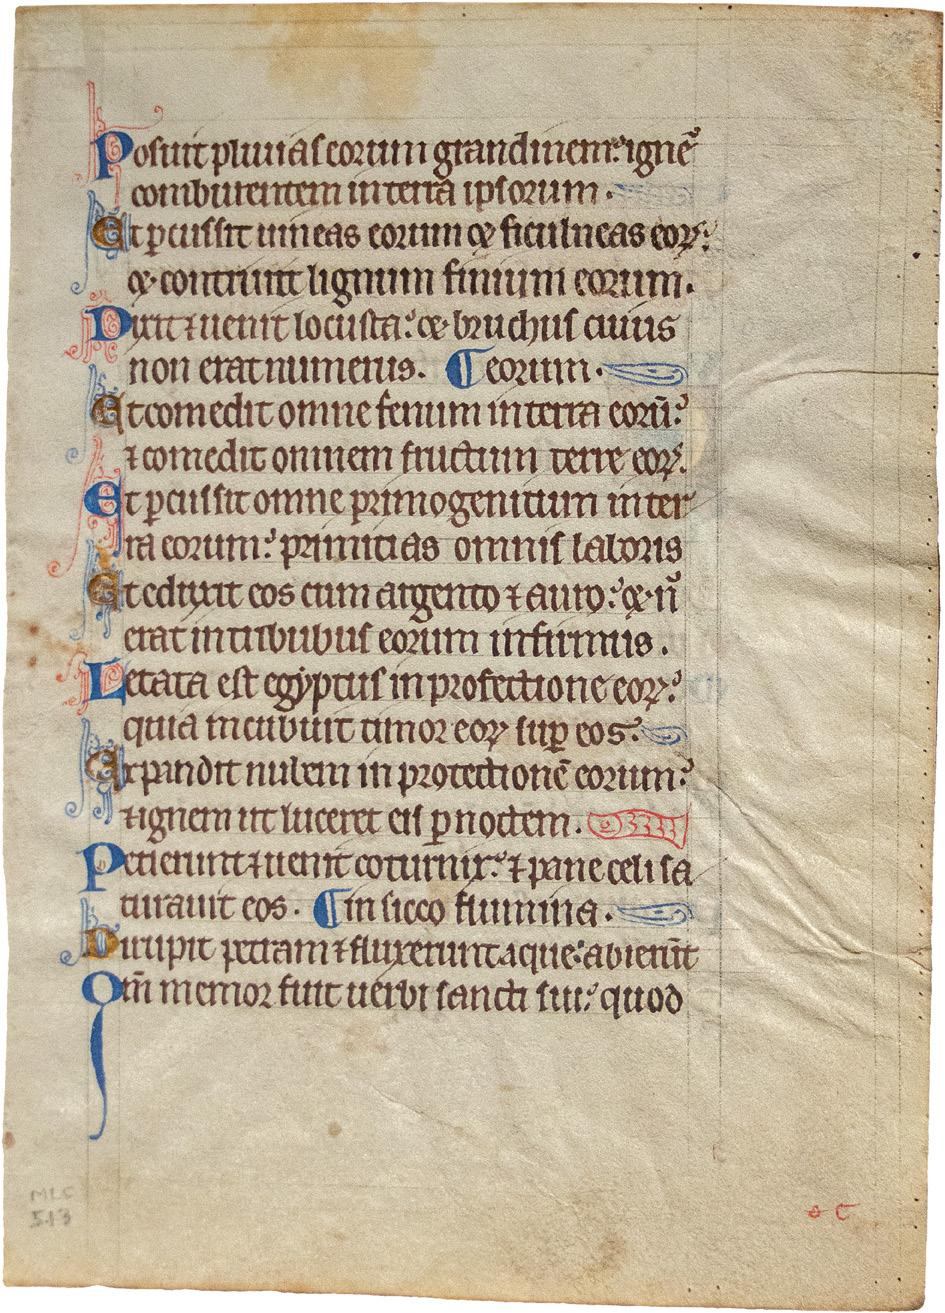 Posuit pluuias eorum grandinem: ignē
comburentem in terra ipsorum.
Et ꝑcussit uineas eorum & ficulneas eoꝝ:
& contriuit lignum finium eorum.
Dixit ⁊ uenit locusta: & bruchus cuius
non erat numerus. ¶ eorum.
Et comedit omne fenum in terra eorū:
⁊ comedit omnem fructum terre eoꝝ.
Et ꝑcussit omne primogenitum in ter
ra eorum: primitias omnis laboris
Et eduxit eos cum argento ⁊ auro: & n̄
erat in tribubus eorum infirmus.
Letata est egyptus in profectione eoꝝ:
quia incubuit timor eoꝝ suꝑ eos.
Expandit nubem in protectionē eorum:
⁊ ignem ut luceret eis ꝑ noctem.
Petierunt ⁊ uenit coturnix: ⁊ pane celi sa
turauit eos. ¶ in sicco flumina.
Dirupit petram ⁊ fluxerunt aque: abierūt
Qm̄ memor fuit uerbi sancti sui: quod
MLC
513